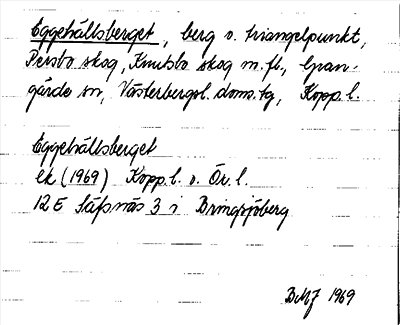 Eggehällsberget, berg o. triangelpunkt,
Persbo skog, Knutsbo skog m.fl., Gran-
gärde sn, Västerbergsl. doms. tg, Kopp. l.
Eggehällsberget
ek (1969) Kopp. l. o. Ör. l.
12 E Säfsnäs 3 i Bringsjöberg
BMJ 1969